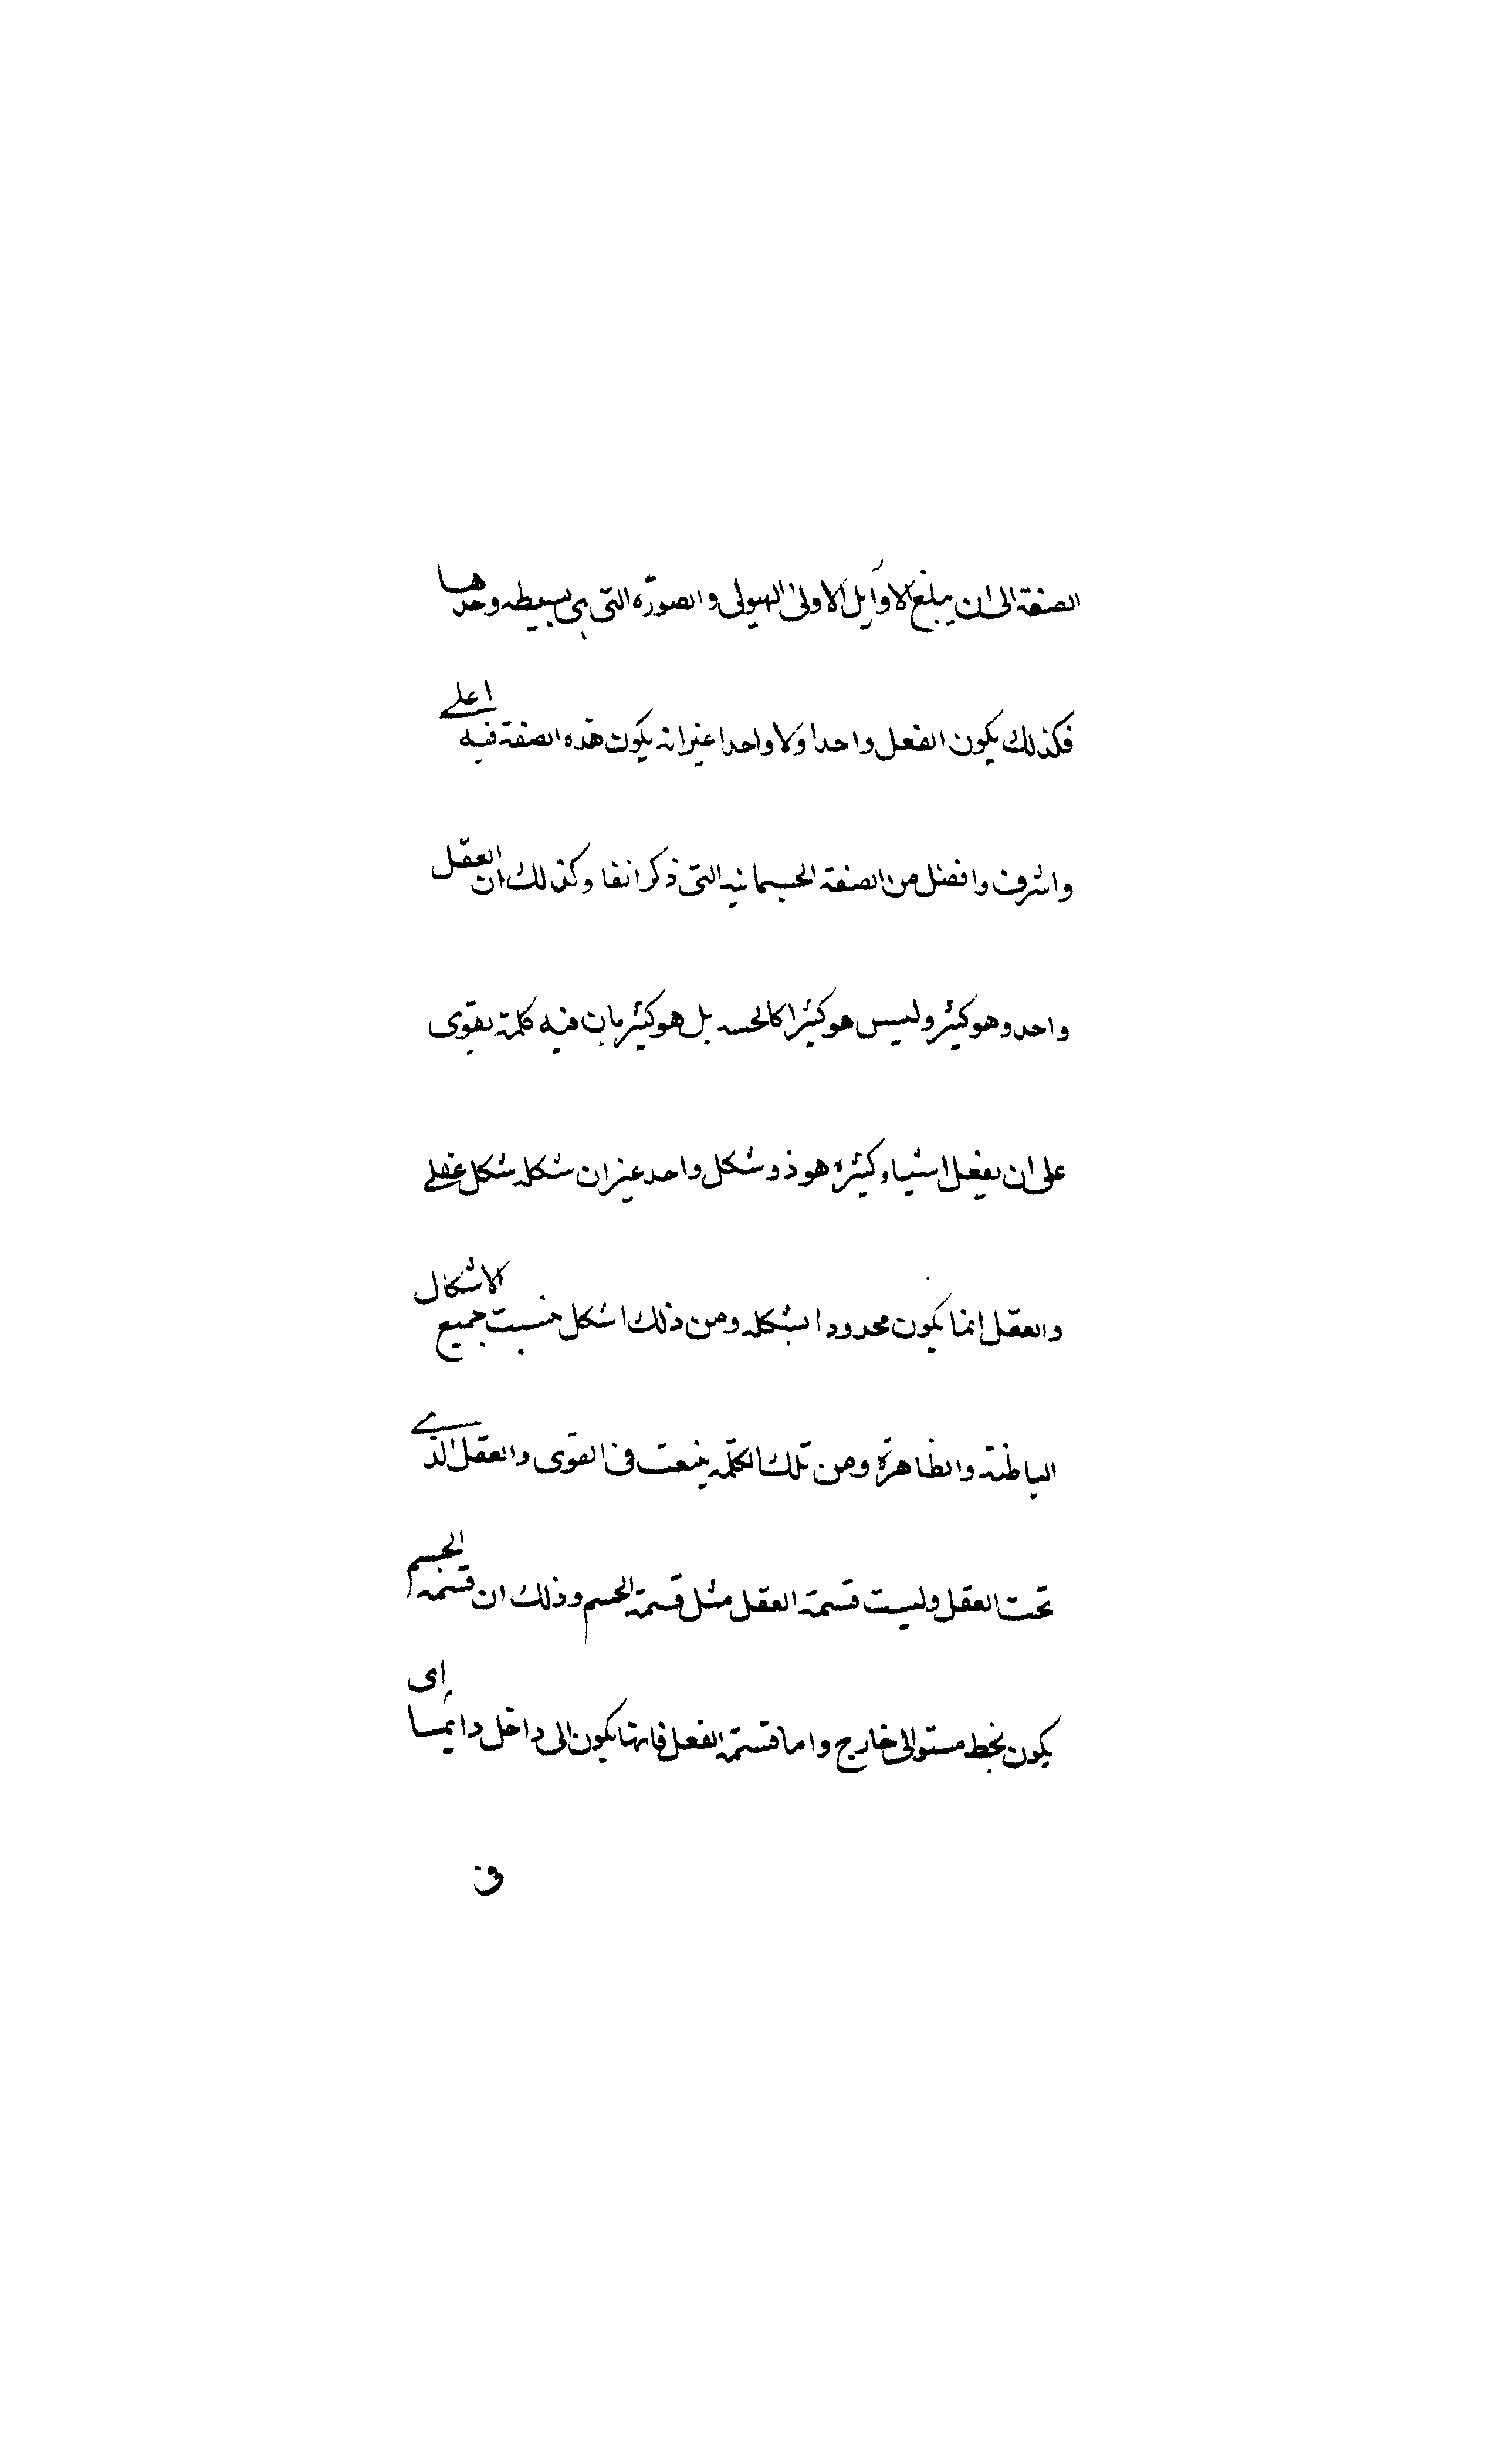 الصنفة الى ان يبلغ الاوآيل الاولى الهيولى والصورة التى هى بسيطه وحدها
فكذلك يكون الفعل واحدا ولا واحدا غير انه يكون هذه الصفة فيه اعلى
واشرف وافضل من الصنفة الجسمانيه التى ذكر انفا وكذلك ان العقل
واحد وهو كثير وليس هو كثيرا كالجسد بل هو كثير بان فيه كلمة يقوى
على ان يفعل اشياء كثيرة هو ذو شكل واحد غير ان شكله شكل عقلى
والعقل انما يكون محدودا بشكله ومن ذلك اشكل جميع الاشكال
الباطنة والظاهرة ومن تلك الكلمه ينبعث فى القوى والعقل الذى
تحت العقل وليست قسمة العقل مثل قسمة الجسم وذلك ان قسمة الجسم
يكون بخط مستو الى خارج واما قسمة الفعل فانها يكون الى داخل دايما اى
فى